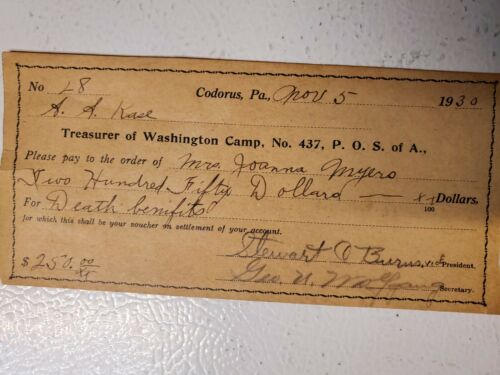 No 28 Codorus, Pa., Nov 5 1930
A. A. Kase
Treasurer of Washington Camp, No. 437, P. O. S. of A.,
Please pay to the order of Mrs. Joanna Myers
Two Hundred Fifty Dollars — xx/100 Dollars.
For Death benifits
for which this shall be your voucher in settlement of your account.
Stewart C Burns, President.
$250.00/xx Geo. N. Secretary.